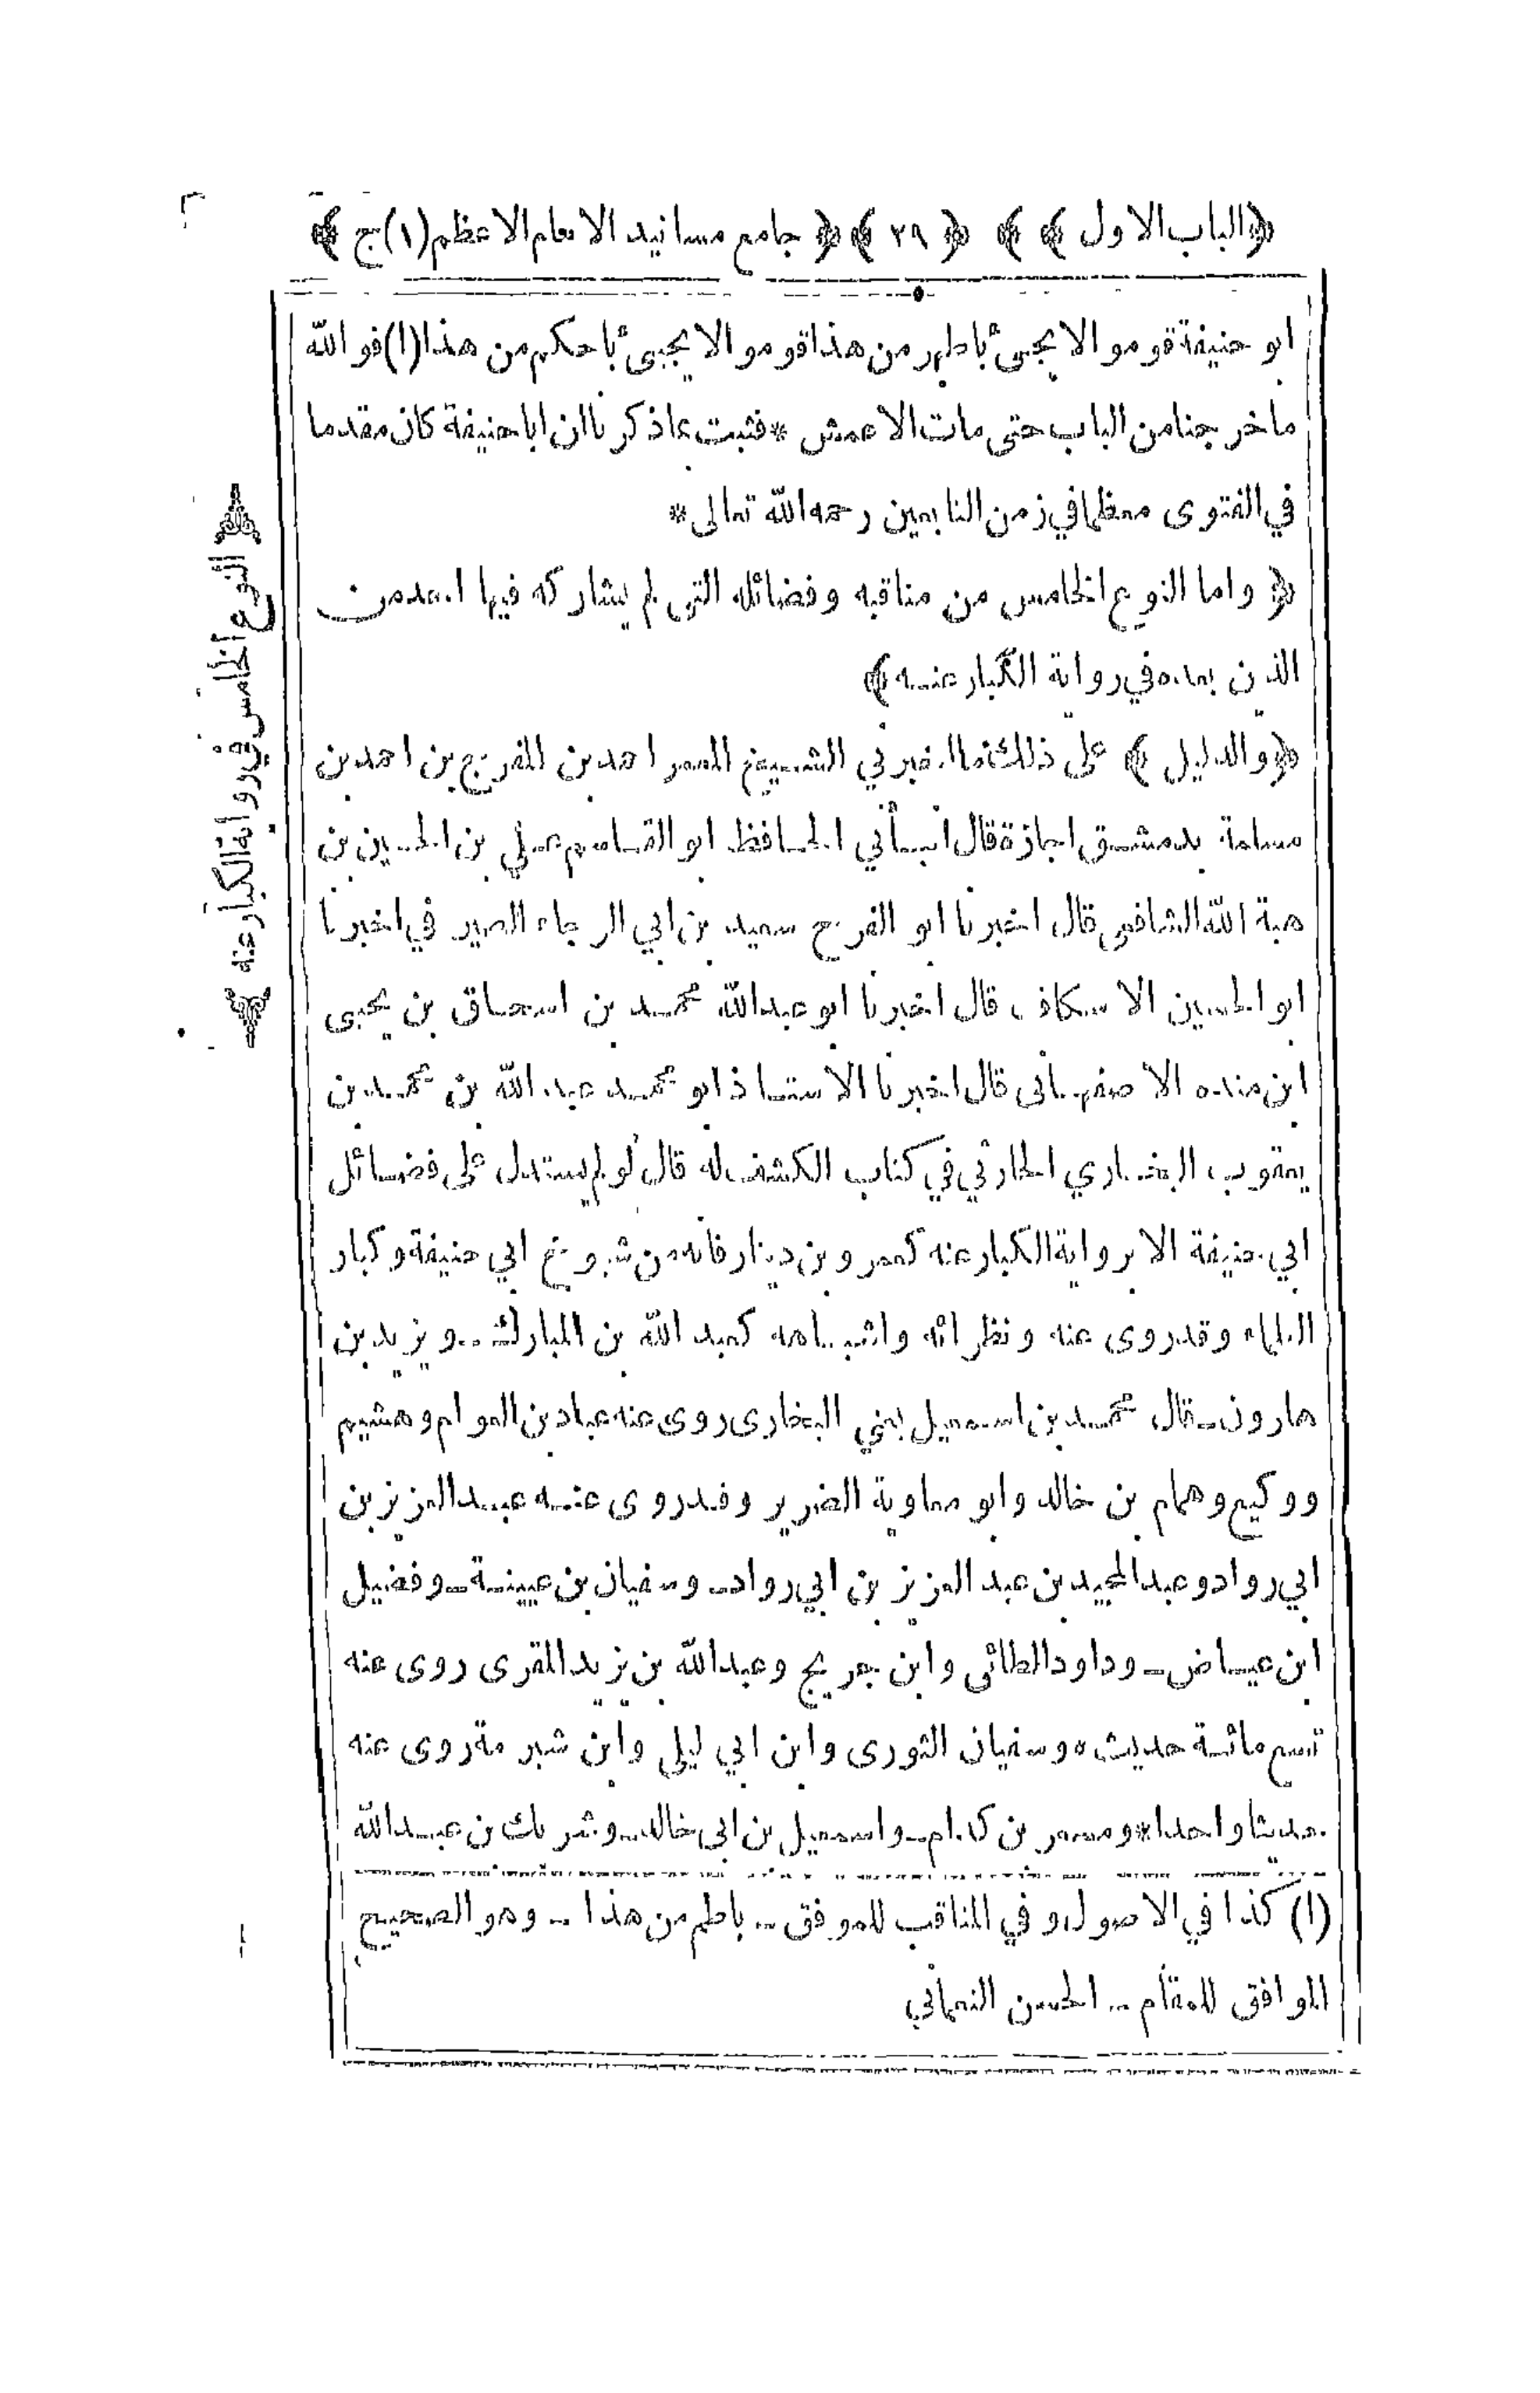 ﴿الباب الاول﴾ ﴿٢٩﴾ ﴿جامع مسانيد الامام الاعظم(١)ج﴾
ابو حنيفة قوموا لا يجيئ باطهر من هذا قوموا لا يجيئ باحكم من هذا(١) فو الله
ما خرجنا من الباب حتى مات الاعمش * فثبت بما ذكرنا ان ابا حنيفة كان مقدما
في الفتوى معظما في زمن التابعين رحمه الله تعالى *
﴿ واما النوع الخامس من مناقبه وفضائله التي لم يشاركه فيها احد من
الذين بعده في رواية الكبار عنه ﴾
﴿والدليل﴾ على ذلك ما اخبرني الشيخ المعمر احمد بن المفرج بن احمد بن
مسلمة بدمشق اجازة قال انبأني الحافظ ابو القاسم علي بن الحسين بن
هبة الله الشافعي قال اخبرنا ابو الفرج سعيد بن ابي الرجاء الصير في اخبرنا
ابو الحسين الاسكاف قال اخبرنا ابو عبدالله محمد بن اسحاق بن يحيى
ابن منده الاصفهانى قال اخبرنا الاستاذ ابو محمد عبد الله بن محمد بن
يعقوب البخاري الحارثي في كتاب الكشف له قال لو لم يستدل على فضائل
ابي حنيفة الا برواية الكبار عنه كعمرو بن دينار فانه من شيوخ ابي حنيفة وكبار
العلماء وقد روى عنه ونظرائه واشباهه كعبد الله بن المبارك - ويزيد بن
هارون - قال محمد بن اسمعيل يعني البخارى روى عنه عباد بن العوام وهشيم
ووكيع وهمام بن خالد وابو معاوية الضرير وقد روى عنه عبد العزيز بن
ابي رواد وعبد المجيد بن عبد العزيز بن ابي رواد - وسفيان بن عيينة - وفضيل
ابن عياض - وداود الطائى وابن جريج وعبدالله بن يزيد المقرى روى عنه
تسع مائة حديث ه وسفيان الثورى وابن ابي ليلى وابن شبرمة روى عنه
حديثا واحدا * ومسعر بن كدام - واسمعيل بن ابى خالد - وشريك بن عبد الله
(١) كذا في الاصول وفي المناقب للموفق - باطم من هذا - وهو الصحيح
الموافق للمقام - الحسن النعماني
النوع الخامس في رواية الكبار عنه